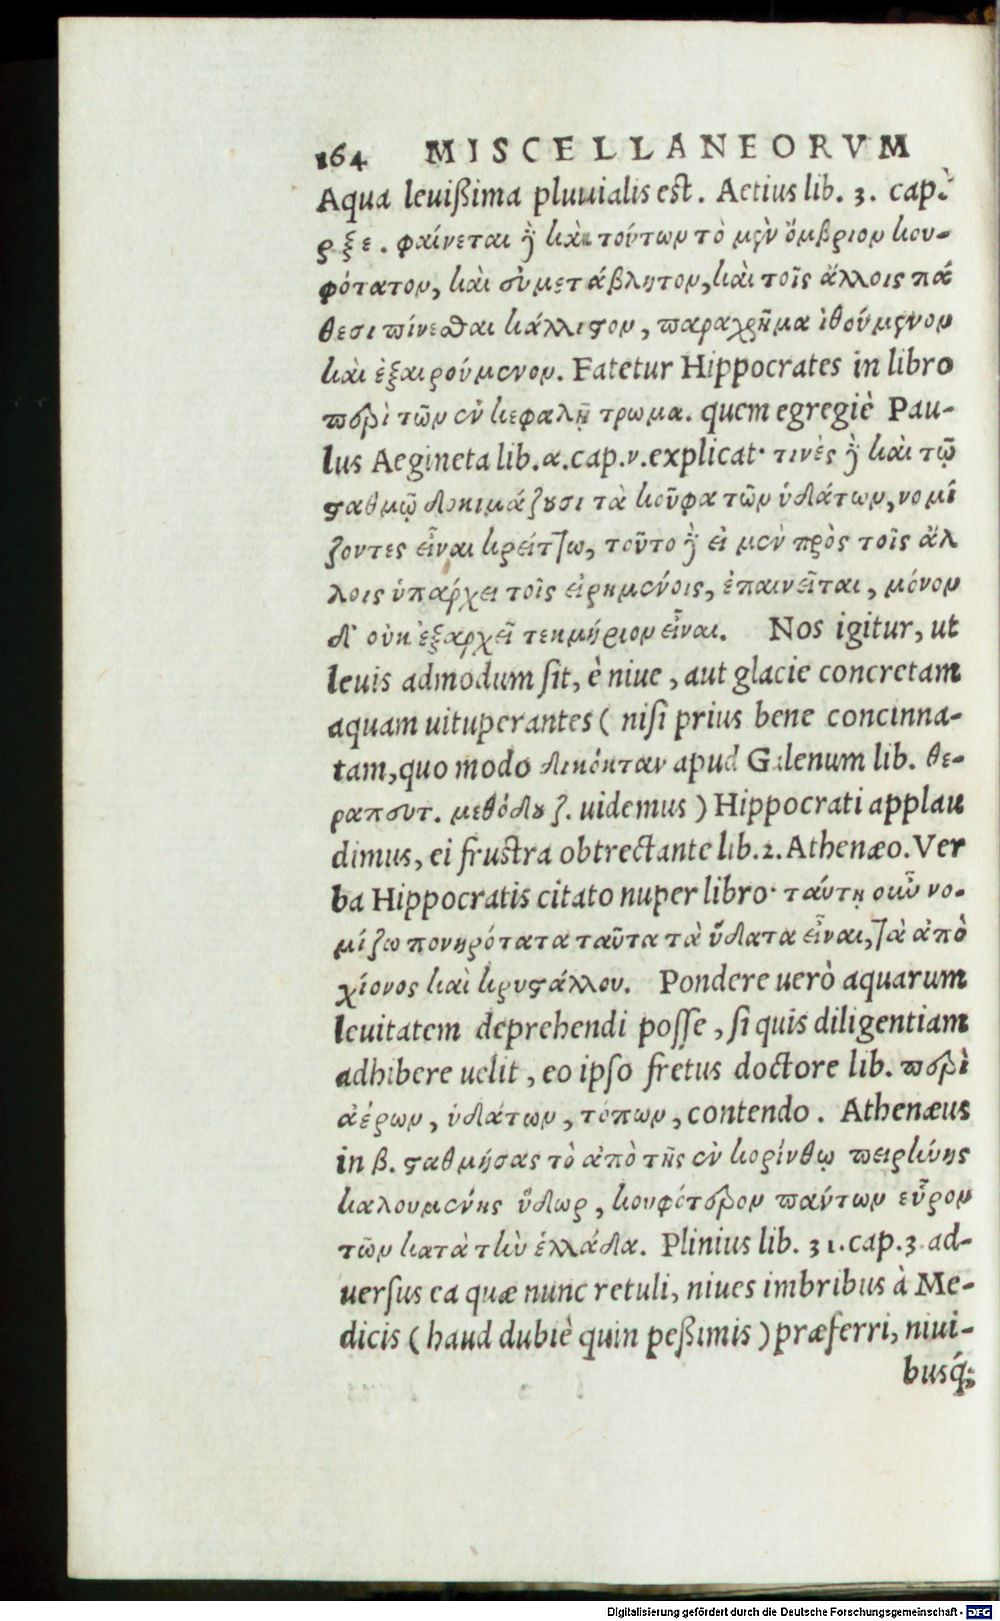 164 MISCELLANEORVM
Aqua leuißima pluuialis est. Aetius lib. 3. cap.
ρξε. φαίνεται ἢ καὶ τούτων τὸ μὲν ὄμβριον κου-
φότατον, καὶ συμετάβλητον, καὶ τοῖς ἄλλοις πά
θεσι πίνεσθαι κάλλιστον, παραχρῆμα ἠθούμενον
καὶ ἐξαιρούμενον. Fatetur Hippocrates in libro
περὶ τῶν ἐν κεφαλῇ τρωμα. quem egregiè Pau-
lus Aegineta lib.α.cap.ν.explicat· τινὲς δὲ καὶ τῷ
σταθμῷ δοκιμάζουσι τὰ κοῦφα τῶν ὑδάτων, νομί
ζοντες εἶναι κρείττω, τοῦτο δὲ εἰ μὲν πρὸς τοῖς ἄλ
λοις ὑπάρχει τοῖς εἰρημένοις, ἐπαινεῖται, μόνον
δ' οὐκ ἐξαρχεῖ τεκμήριον εἶναι. Nos igitur, ut
leuis admodum sit, è niue, aut glacie concretam
aquam uituperantes ( nisi prius bene concinna-
tam, quo modo δικόκταν apud Galenum lib. θε-
ραπευτ. μεθόδου ζ. uidemus ) Hippocrati applau
dimus, ei frustra obtrectante lib.2. Athenæo. Ver
ba Hippocratis citato nuper libro· ταύτῃ οὖν νο-
μίζω πονηρότατα ταῦτα τὰ ὕδατα εἶναι, τὰ ἀπὸ
χίονος καὶ κρυστάλλου. Pondere uerò aquarum
leuitatem deprehendi posse, si quis diligentiam
adhibere uelit, eo ipso fretus doctore lib. περὶ
ἀέρων, ὑδάτων, τόπων, contendo. Athenæus
in β. σταθμήσας τὸ ἀπὸ τῆς ἐν κορίνθῳ πειρήνης
καλουμένης ὕδωρ, κουφότερον πάντων εὗρον
τῶν κατὰ τὴν ἑλλάδα. Plinius lib. 31. cap.3 ad-
uersus ea quæ nunc retuli, niues imbribus à Me-
dicis ( haud dubiè quin peßimis ) præferri, niui-
busq́;
Digitalisierung gefördert durch die Deutsche Forschungsgemeinschaft - DFG